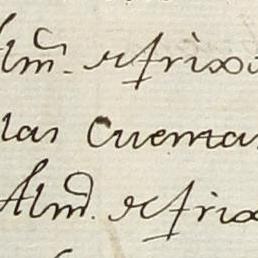 Alm. de frixo
las Cuentas
Almd. de frix